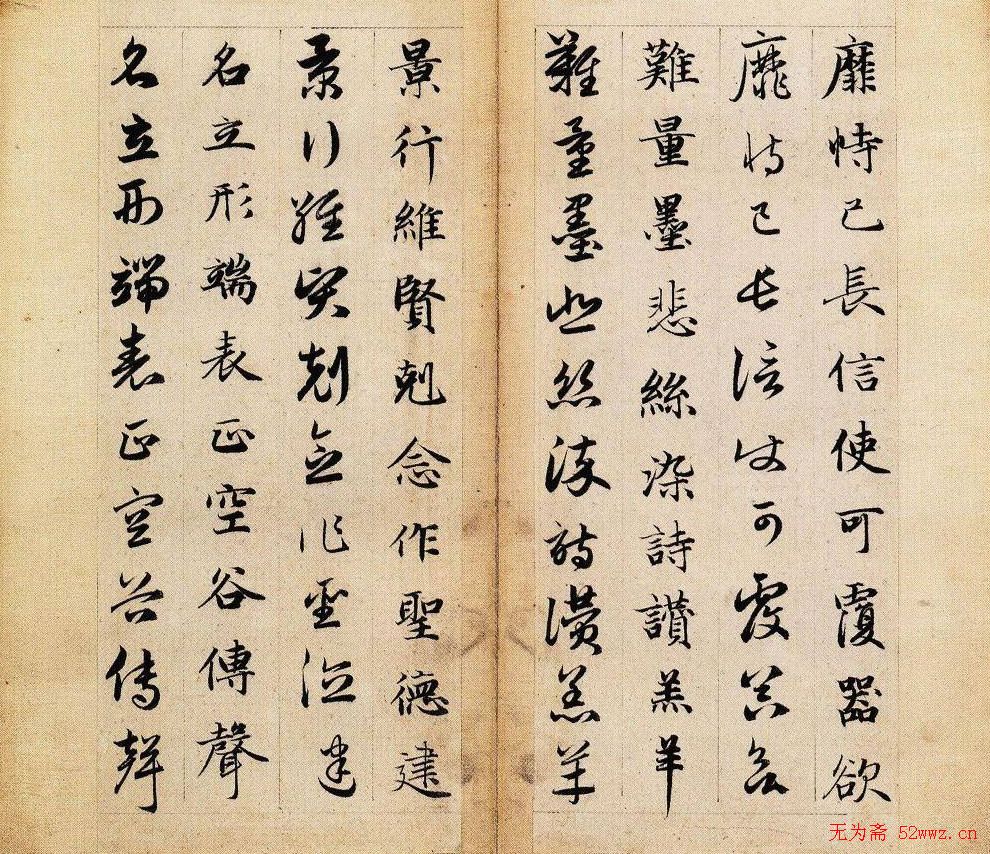 靡恃己長信使可覆器欲
靡恃己長信使可覆器欲
難量墨悲絲染詩讚羔羊
難量墨悲絲染詩讚羔羊
景行維賢剋念作聖德建
景行維賢剋念作聖德建
名立形端表正空谷傳聲
名立形端表正空谷傳聲
无为斋 52wwz.cn